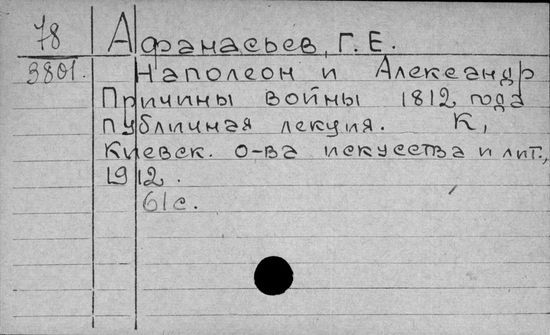 78 Афанасьев, Г. Е.
3801. Наполеон и Александр
Причины войны 1812 года
публичная лекция. К,
Киевск. о-ва искусства и лит.,
1912.
61с.